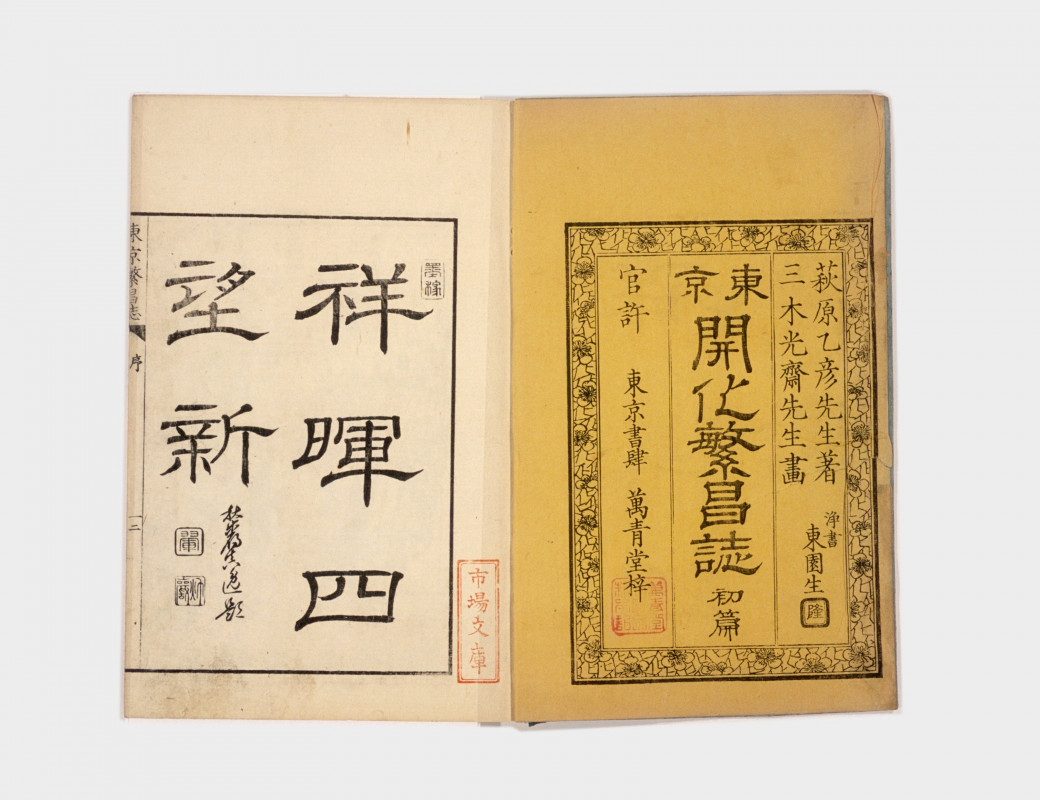 萩原乙彦先生著
三木光齋先生畫
浄書
東園生
隆
東京
開化繁昌誌
初篇
官許
東京書肆 萬青堂梓
祥暉四
望新
題
市場文庫
東京繁昌誌
序
二